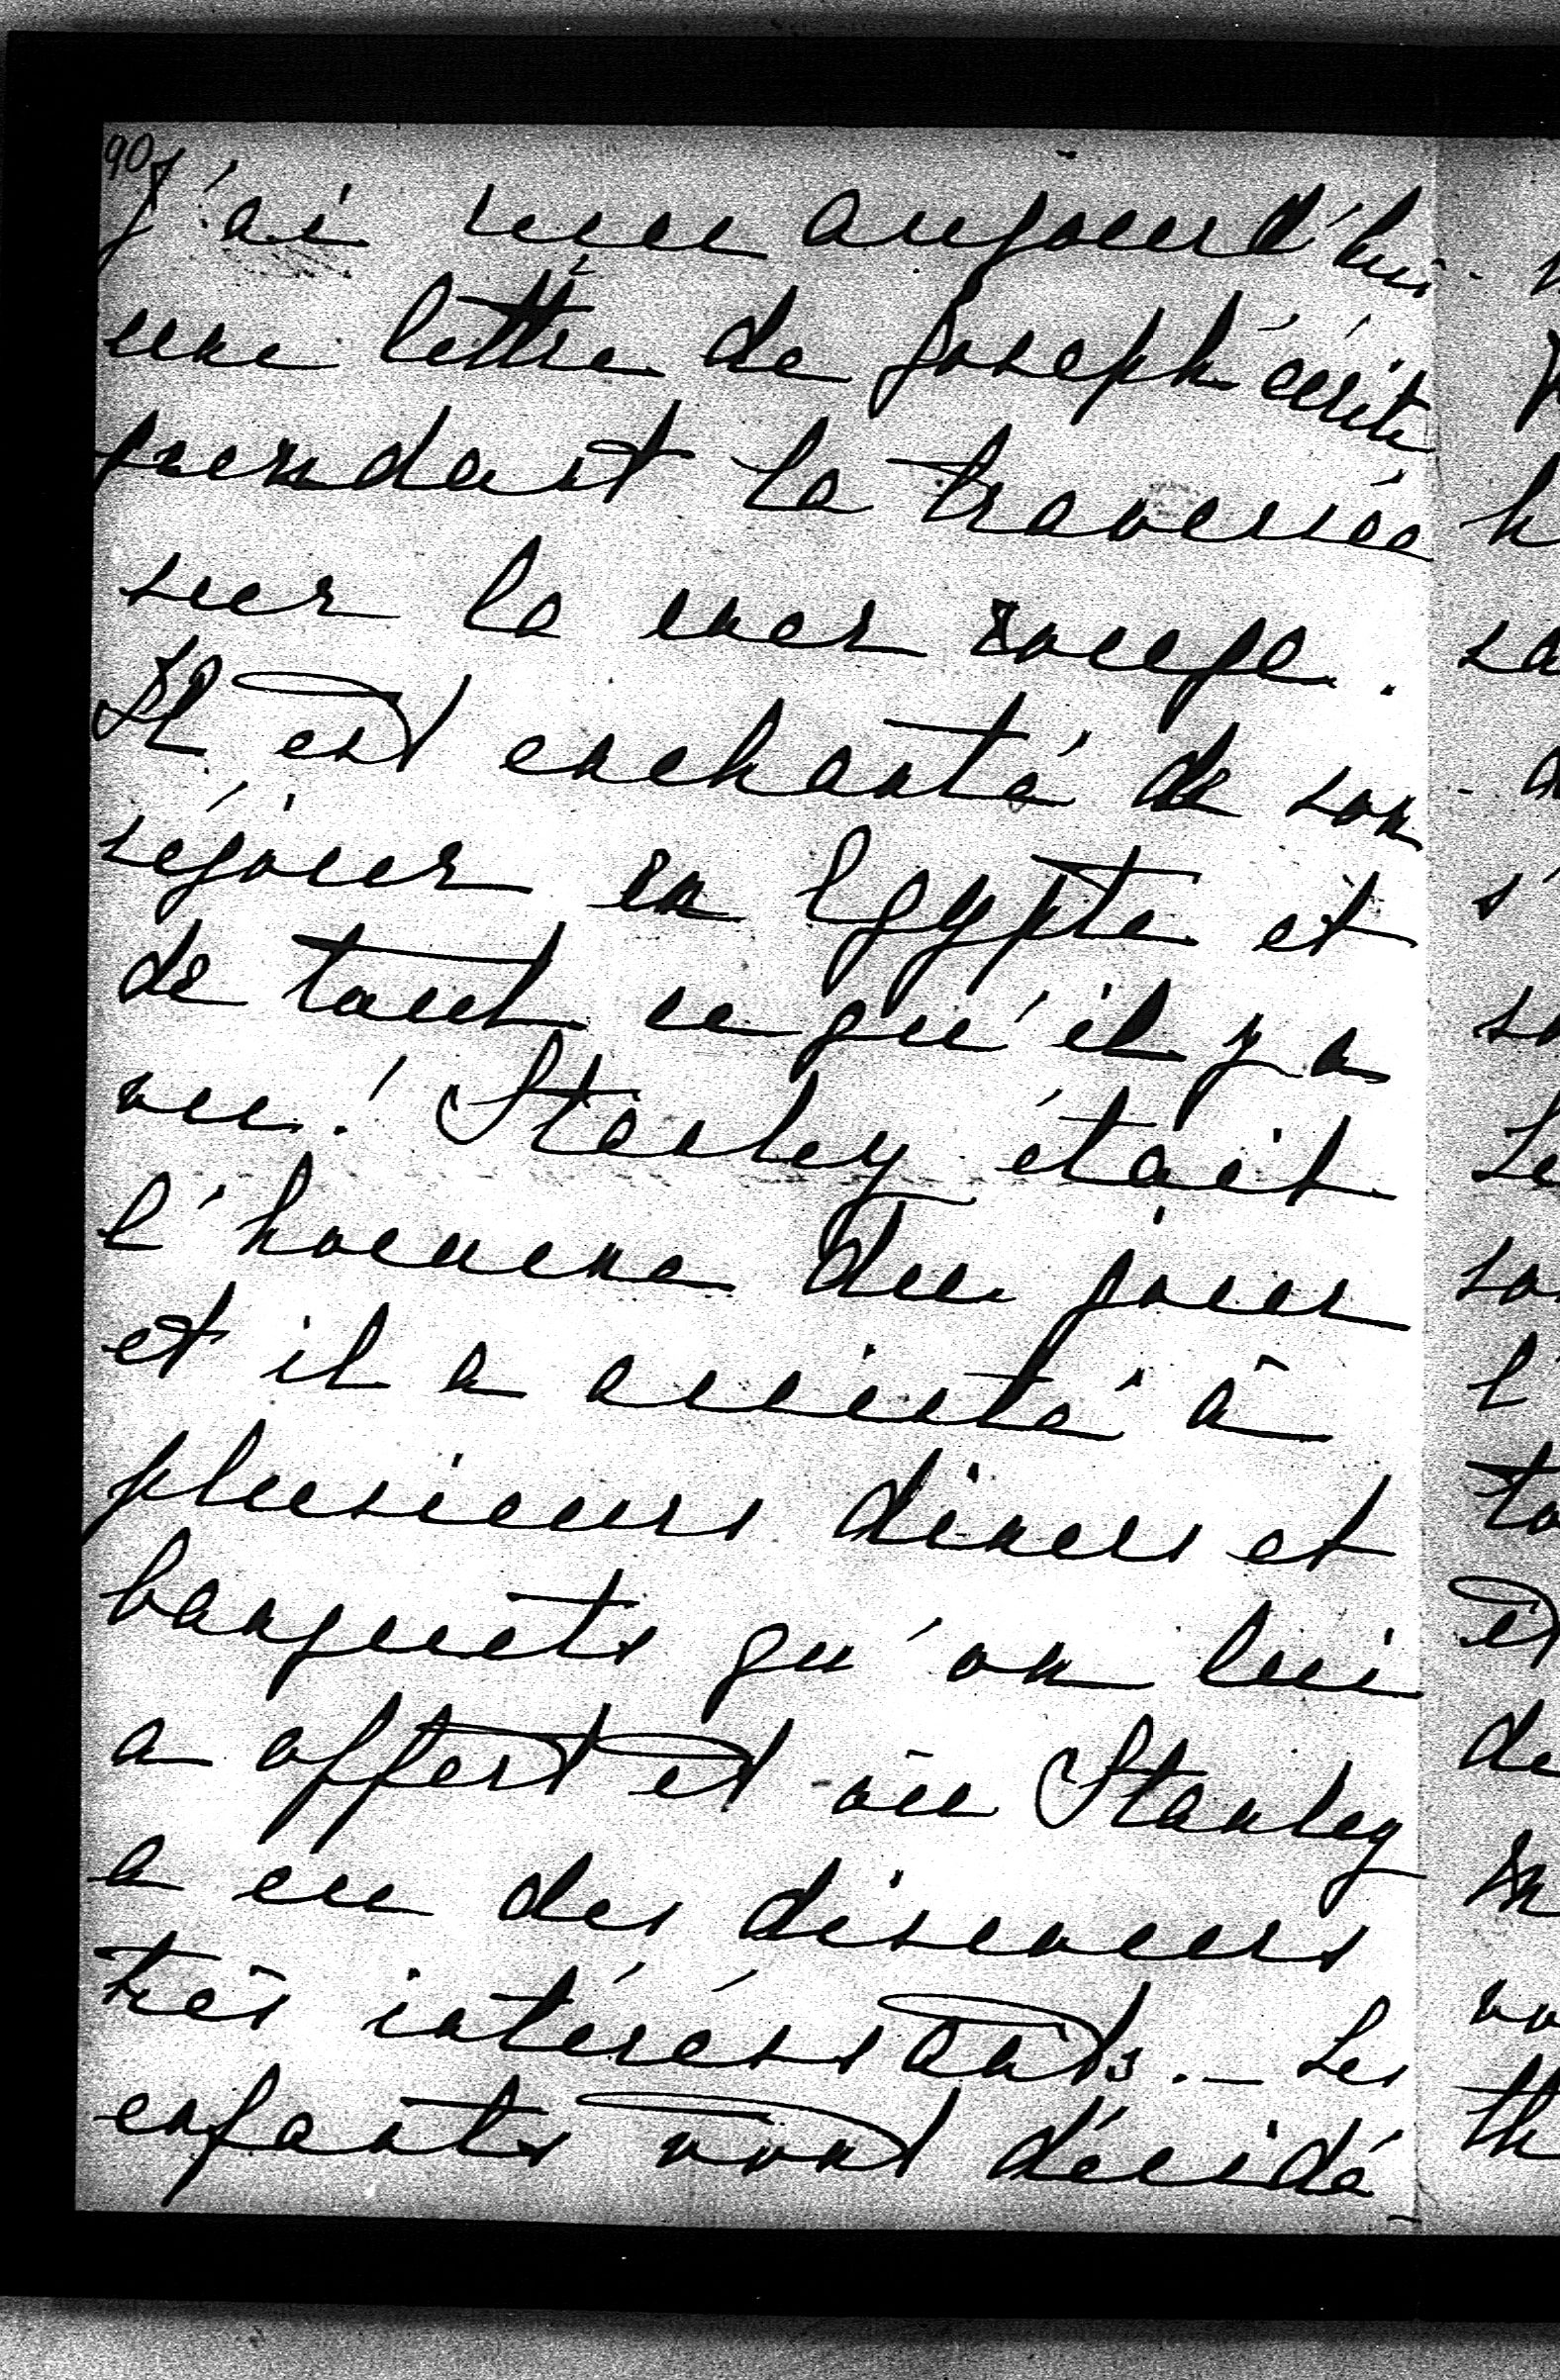 90
J'ai reçu aujourd'hui
une lettre de Joseph écrite
pendant la traversée
sur la mer rouge.
Il est enchanté de son
séjour en Egypte et
de tout ce qu'il y a
vu! Stanley était
l'homme du jour
et il a assisté à
plusieurs diners et
banquets qu'on lui
a offert et où Stanley
a eu des discours
très intéréssants. _ Les
enfants vont décidé